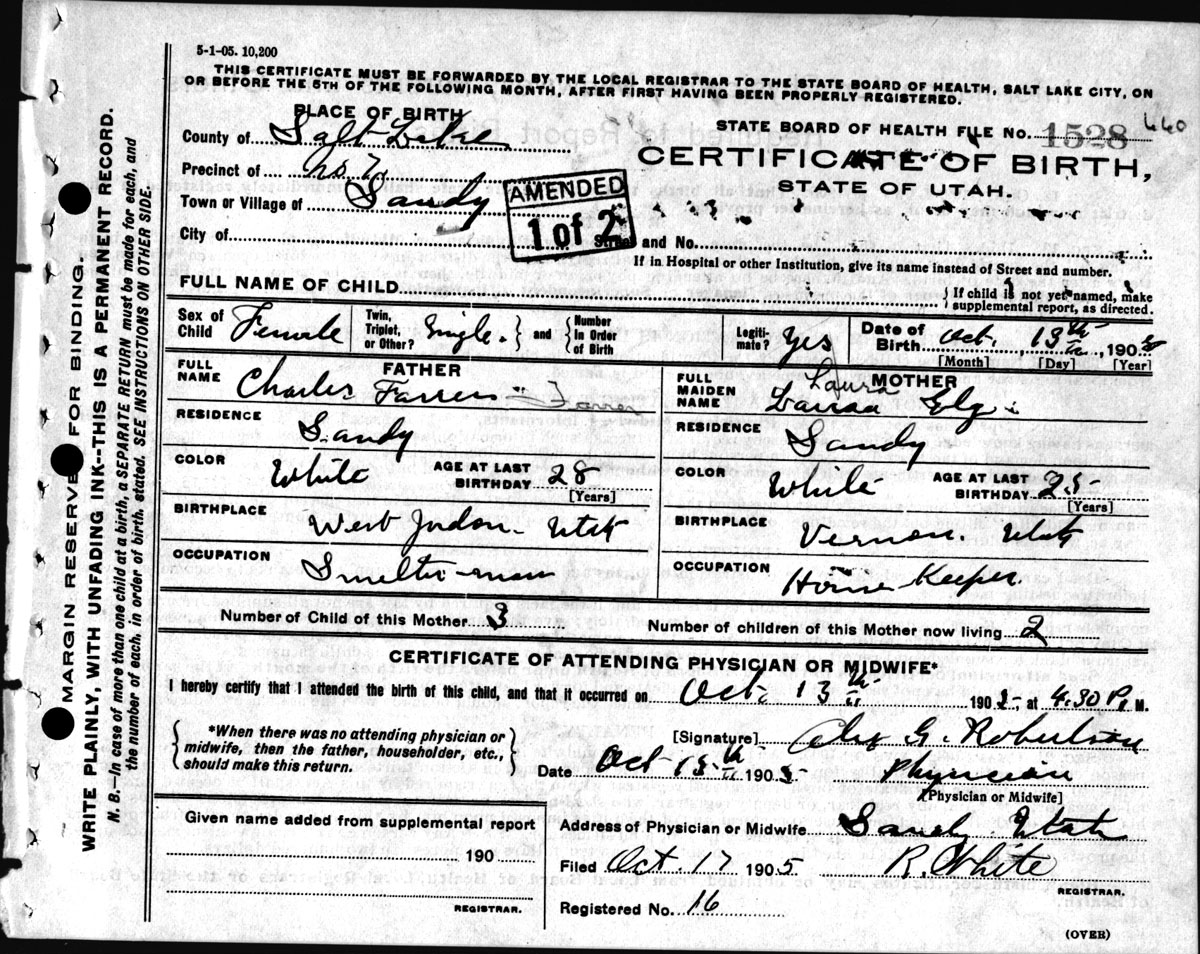 5-1-05. 10,200
THIS CERTIFICATE MUST BE FORWARDED BY THE LOCAL REGISTRAR TO THE STATE BOARD OF HEALTH, SALT LAKE CITY, ON
OR BEFORE THE 5TH OF THE FOLLOWING MONTH, AFTER FIRST HAVING BEEN PROPERLY REGISTERED.
PLACE OF BIRTH
County of Salt Lake
Precinct of No 7
Town or Village of Sandy
City of
AMENDED
1 of 2
STATE BOARD OF HEALTH FILE No. 1528 440
CERTIFICATE OF BIRTH,
STATE OF UTAH.
Street and No.
If in Hospital or other Institution, give its name instead of Street and number.
FULL NAME OF CHILD
{ If child is not yet named, make
supplemental report, as directed.
Sex of Child Female
Twin, Triplet, or Other? Single. } and { Number In Order of Birth
Legitimate? Yes
Date of Birth Oct. 13th, 1905
[Month] [Day] [Year]
FATHER
FULL NAME Charles Farrer Farrer
RESIDENCE Sandy
COLOR White AGE AT LAST BIRTHDAY 28
[Years]
BIRTHPLACE West Jordon Utah
OCCUPATION Smelter-man
MOTHER
FULL MAIDEN NAME Laura
RESIDENCE Sandy
COLOR White AGE AT LAST BIRTHDAY 25
[Years]
BIRTHPLACE Vernon. Utah
OCCUPATION House Keeper.
Number of Child of this Mother 3
Number of children of this Mother now living 2
CERTIFICATE OF ATTENDING PHYSICIAN OR MIDWIFE*
I hereby certify that I attended the birth of this child, and that it occurred on Oct. 13th 1905, at 4.30 P. M.
{ *When there was no attending physician or
midwife, then the father, householder, etc.,
should make this return. }
[Signature] Alex G. Robertson
Date Oct 15th 1905 Physician
[Physician or Midwife]
Given name added from supplemental report
190
REGISTRAR.
Address of Physician or Midwife Sandy Utah
Filed Oct. 17 1905 R. White
REGISTRAR.
Registered No. 16
(OVER)
MARGIN RESERVED FOR BINDING.
WRITE PLAINLY, WITH UNFADING INK--THIS IS A PERMANENT RECORD.
N. B.--In case of more than one child at a birth, a SEPARATE RETURN must be made for each, and
the number of each, in order of birth, stated. SEE INSTRUCTIONS ON OTHER SIDE.